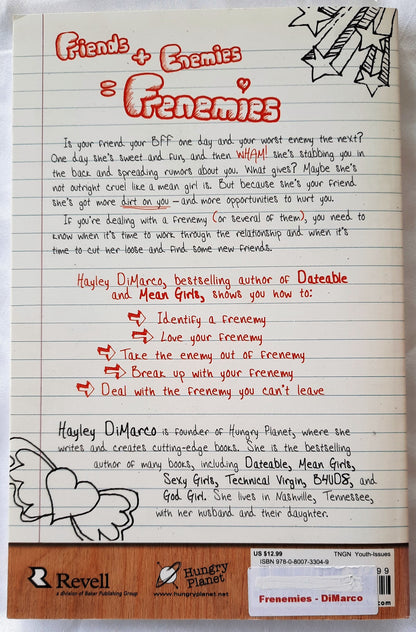 Friends + Enemies
= Frenemies
Is your friend your BFF one day and your worst enemy the next?
One day she's sweet and fun, and then WHAM! she's stabbing you in
the back and spreading rumors about you. What gives? Maybe she's
not outright cruel like a mean girl is. But because she's your friend
she's got more dirt on you – and more opportunities to hurt you.
If you're dealing with a frenemy (or several of them), you need to
know when it's time to work through the relationship and when it's
time to cut her loose and find some new friends.
Hayley DiMarco, bestselling author of Dateable
and Mean Girls, shows you how to:
Identify a frenemy
Love your frenemy
Take the enemy out of frenemy
Break up with your frenemy
Deal with the frenemy you can't leave
Hayley DiMarco is founder of Hungry Planet, where she
writes and creates cutting-edge books. She is the bestselling
author of many books, including Dateable, Mean Girls,
Sexy Girls, Technical Virgin, B4UD8, and
God Girl. She lives in Nashville, Tennessee,
with her husband and their daughter.
Revell
a division of Baker Publishing Group
Hungry
Planet
www.hungryplanet.net
US $12.99 TNGN Youth-Issues
ISBN 978-0-8007-3304-9
9 9
.com
Frenemies - DiMarco